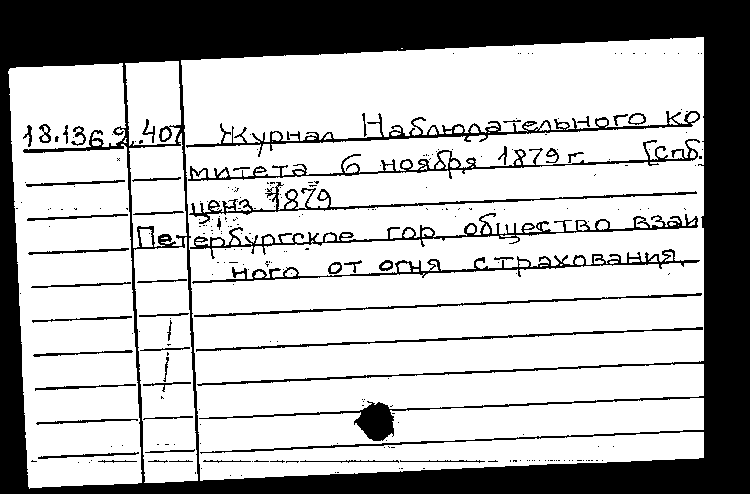 18.136.2.407 Журнал Наблюдательного ко
митета 6 ноября 1879 г. [Спб.
ценз 1879
Петербургское гор. общество взаи
ного от огня страхования.